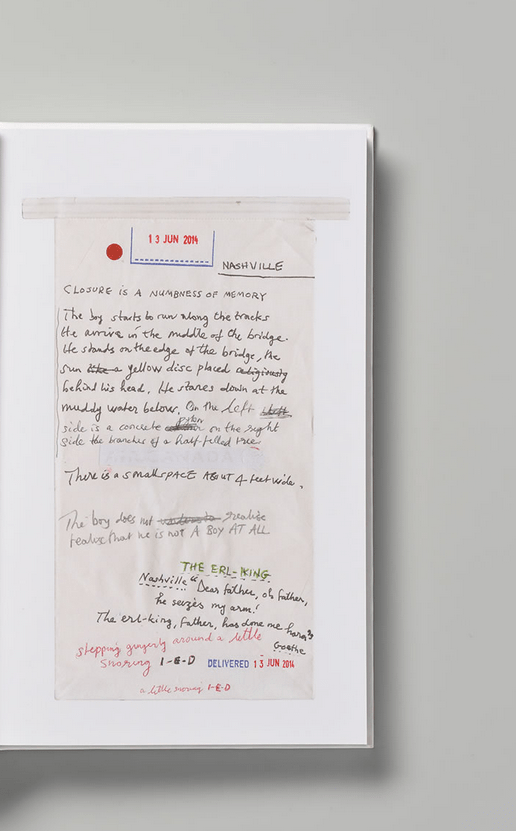 13 JUN 2014
NASHVILLE
CLOSURE IS A NUMBNESS OF MEMORY
The boy starts to run along the tracks
He arrive in the middle of the bridge.
He stands on the edge of the bridge, the
sun like a yellow disc placed
behind his head. He stares down at the
muddy water below. On the left
side is a concrete on the right
side the branches of a half felled tree
There is a small SPACE ABOUT 4 feet wide.
The boy does not realise
realise that he is not A BOY AT ALL
THE ERL-KING
Nashville "Dear father, oh father,
he seizes my arm!
The erl-king, father, has done me harm"
Goethe
stepping gingerly around a little
Snoring I-E-D
DELIVERED 13 JUN 2014
a little snoring I-E-D